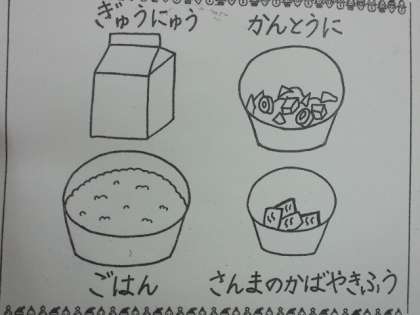 ぎゅうにゅう
かんとうに
ごはん
さんまのかばやきふう